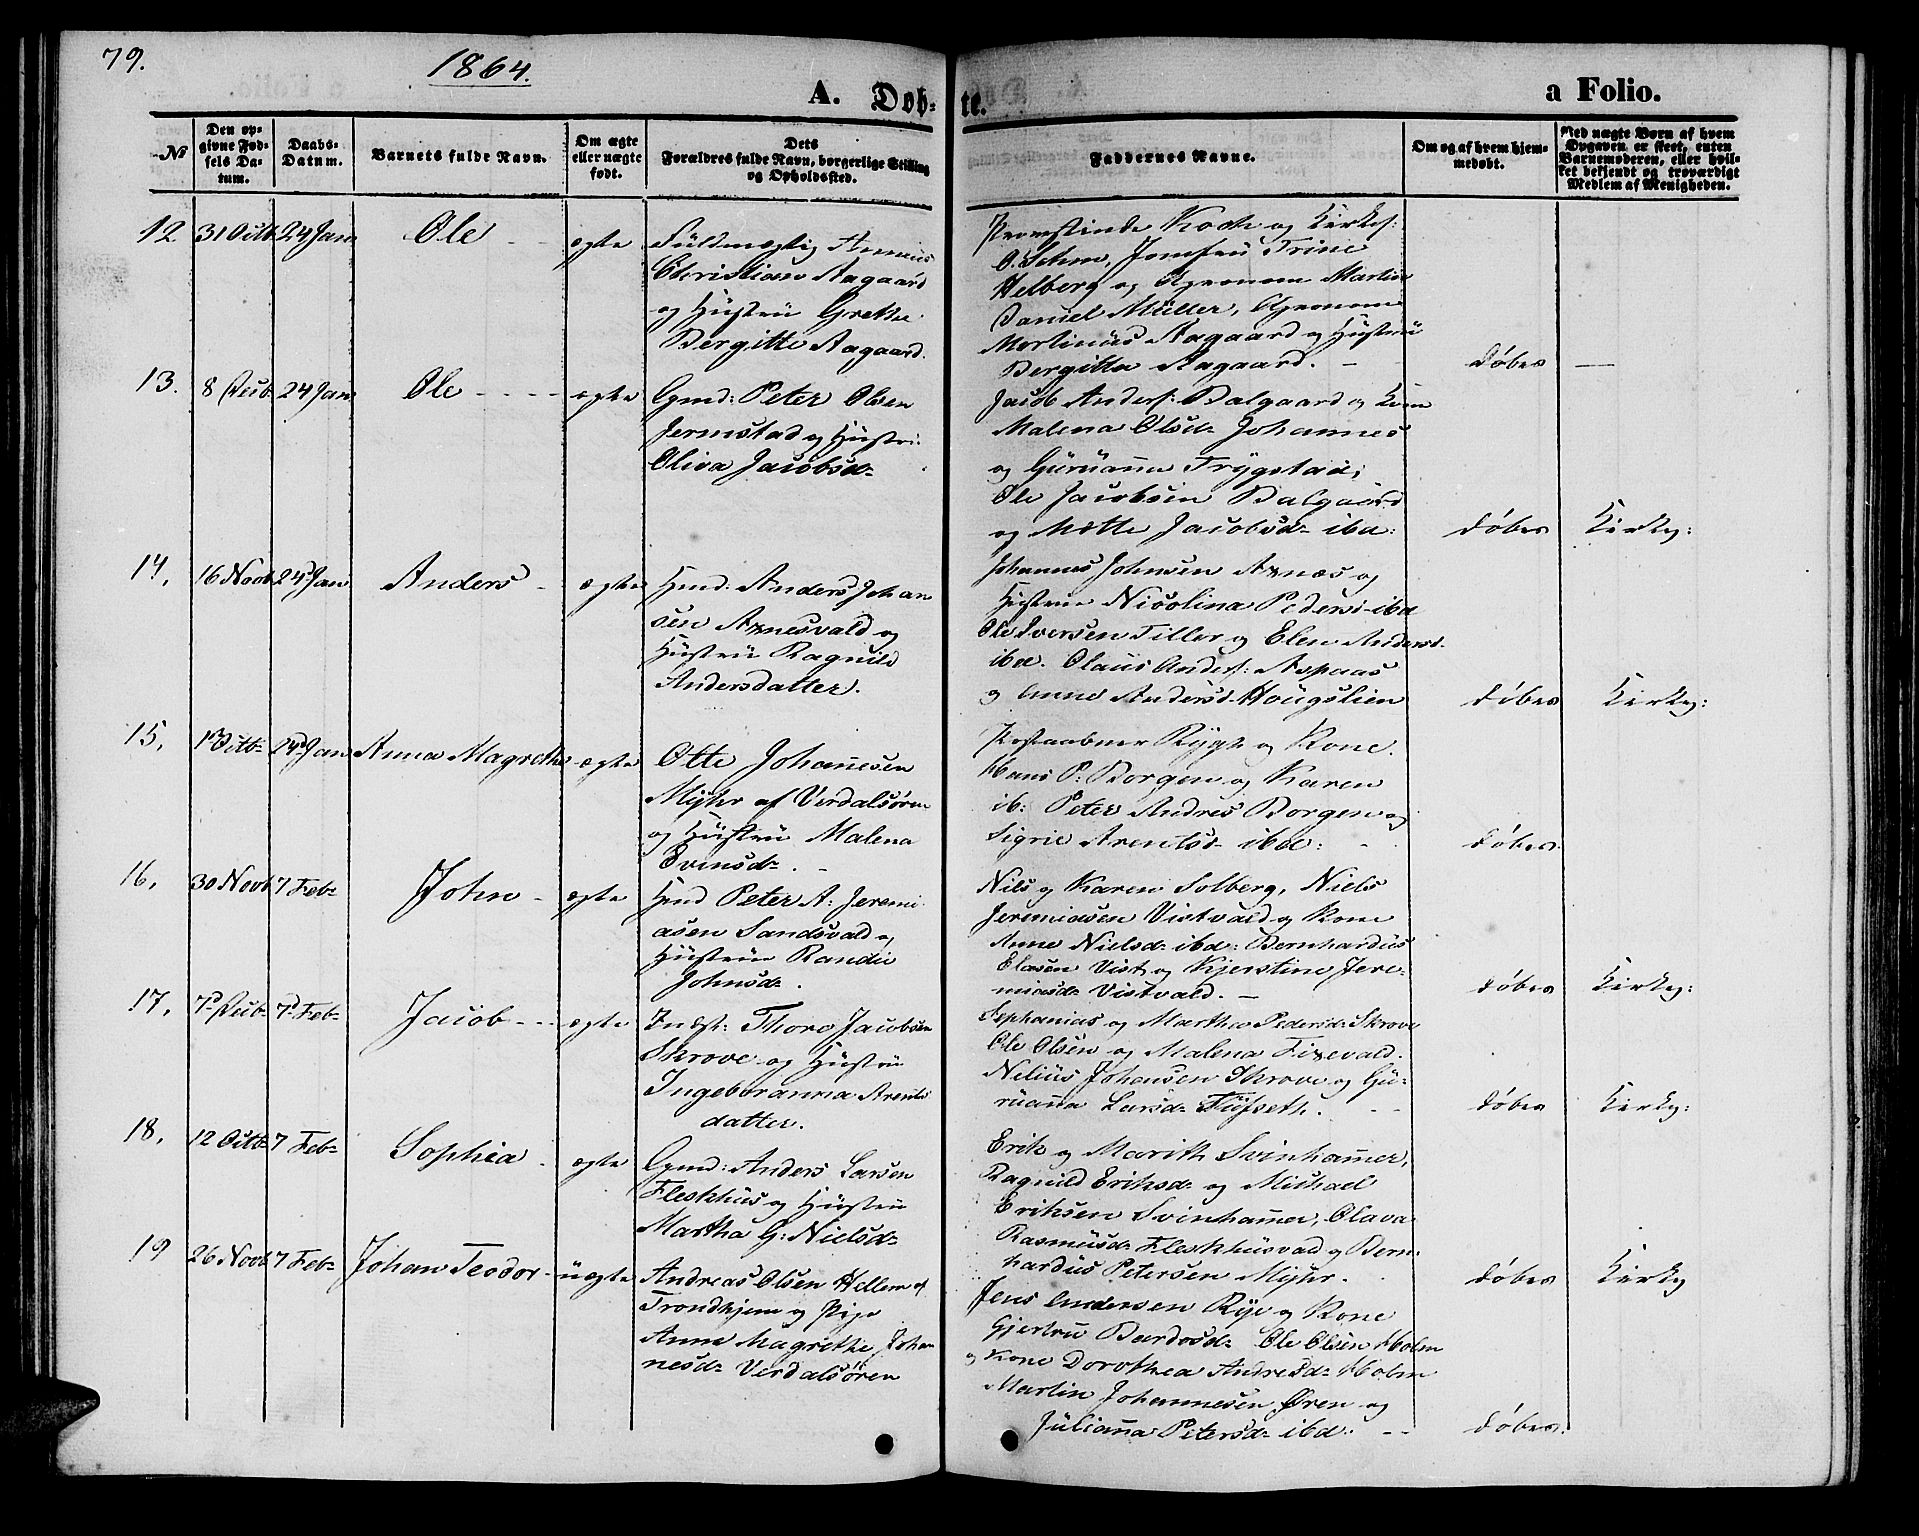 79.
1864.
A. Døb-
te.
a Folio.
№
Den op-
givne Fød-
sels Da-
tum.
Daabs-
Datum.
Barnets fulde Navn.
Om ægte
eller uægte
født.
Dets
Forældres fulde Navn, borgerlige Stilling
og Opholdssted.
Faddernes Navne.
Om og af hvem hjem-
medøbt.
Ved uægte Børn af hvem
Opgaven er skeet, enten
Barnemoderen, eller hvil-
ket bekjendt og troværdigt
Medlem af Menigheden.
12 31 Octb 24 Jan Ole ægte
Fuldmægtig
Christian Aagaard
og Hustru Grethe
Bergitte Aagaard.
Provstinde Koch og Kirkes:
Jomfru Trine
Helberg og Agronom Martin
Daniel Müller, Agronom
Martinus Aagaard og Hustru
Bergitta Aagaard. -
døbes —
13. 8 Decb 24 Jan Ole ægte
Gmd: Peter Olsen
Jermstad og Hustru
Oliva Jacobsd-
Jacob Anders: Balgaard og Kone
Malena Olsd- Johannes
og Guruanna Trygstad,
Ole Jacobsen Balgaard
og Mette Jacobsd- ibd:
døbes Kirkg:
14, 16 Novb 24 Jan Anders ægte
Hmd: Anders Johan
sen Axnesvald og
Hustru Ragnild
Andersdatter.
Johannes Johnsen Axnæs og
Hustru Nicolina Peders- ibd
Ole Iversen Tiller og Elen Andersd-
ibd. Olaus Anders: Aspaas
og Anne Andersd- Hougslien
døbes Kirkg:
15, 13 Octb- 24 Jan Anna Magrethe ægte
Otte Johannesen
Myhr af Verdalsøren
og Hustru Malena
Svensd-.
Postaabner Rygh og Kone.
Hans P: Borgen og Karen
ib: Peter Andres Borgen og
Sigrie Arentsd- ibd:
døbes.
16, 30 Novb 7 Feb- John - ægte
Hmd Peter A: Jeremi
asen Sandsvald og
Hustru Randie
Johnsd-.
Nils og Karen Solberg, Niels
Jeremiasen Vistvald og Kone
Anne Nielsd- ibd: Bernhardus
Elæsen Vist og Kjerstine Jere-
miasd- Vistvald. —
døbes Kirkg:
17, 7d- Decb- 7d Feb- Jacob - ægte
Indst: Thore Jacobsen
Skrove og Hustru
Ingeboranna Arents
datter.
Sephanias og Martha Pedersd- Skrove
Ole Olsen og Malena Fixevald.
Nelius Johansen Skrove og Gu-
ruanna Larsd- Tufseth.
døbes Kirkg:
18, 12 Octb- 7 Feb- Sophia - ægte
Gmd: Anders Larsen
Fleskhus og Hustru
Martha G: Nielsd-
Erik og Marith Svinhammer,
Ragnild Eriksd- og Michael
Eriksen Svinhammer, Olava
Rasmusd- Fleskhusvald og Bern-
hardus Petersen Myhr.
døbes Kirkg
19 26 Novb 7 Feb- Johan Teodor - uægte
Andreas Olsen Hellem af
Trondhjem og Pige
Anne Magrethe Johan
nesd- Verdalsören
Jens Andersen Rye og Kone
Gjertru Bardosd- Ole Olsen Holm
og Kone Dorothea Andresd- Holm
Martin Johannesen Øren og
Julianna Petersd- ibd: --
døbes.